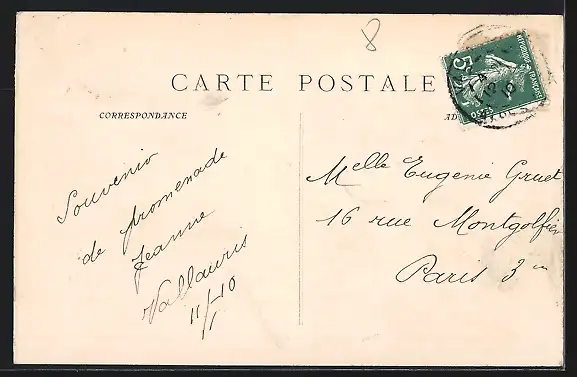 8
CARTE POSTALE
CORRESPONDANCE
AD
5c
Souvenir
de promenade
Jeanne
Vallauris
11/1-10
Melle Eugenie Gruet
16 rue Montgolfier
Paris 3e